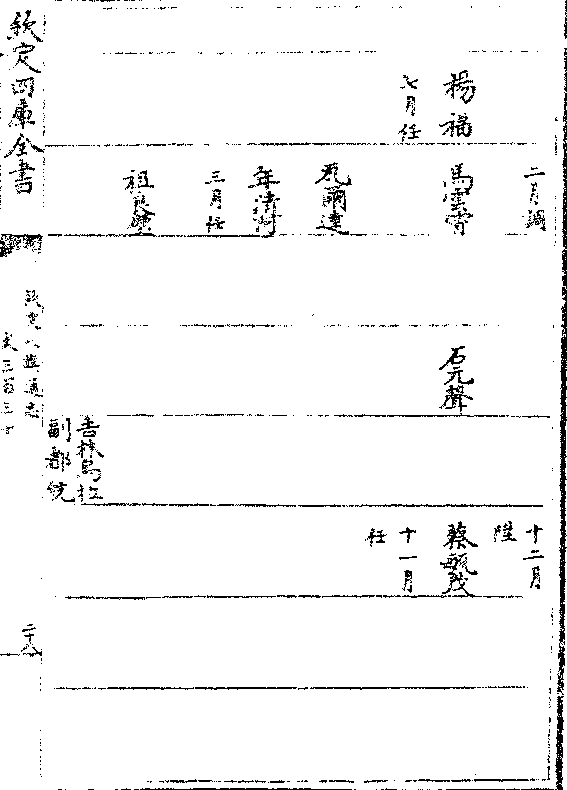 楊福
七月任
二月調
馬雲霄
瓦爾達
年清河
三月任
祖良
石元聲
吉林烏拉
副都統
十二月
陞
蔡毓茂
十一月
任
欽定四庫全書
欽定八旗通志
卷三百三十
二十八